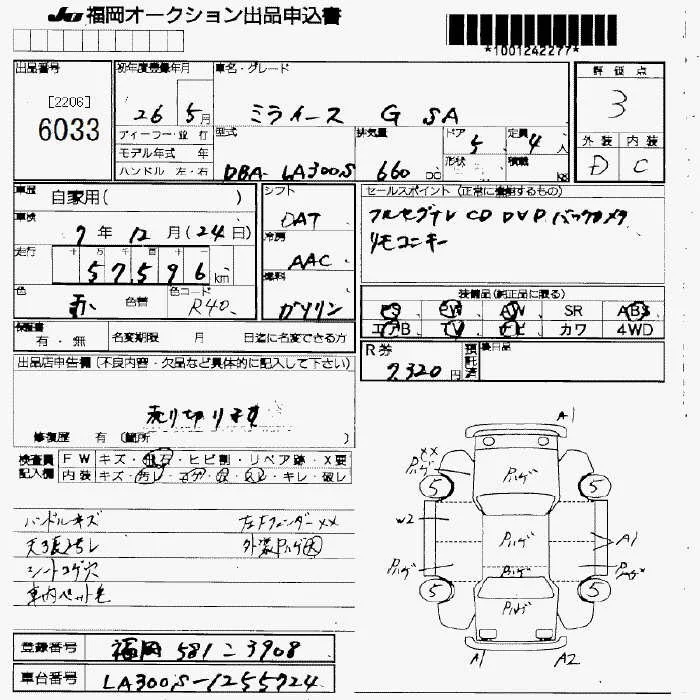 JU 福岡オークション出品申込書
*1001242277*
出品番号
[2206]
6033
初年度登録年月
26 5月
車名・グレード
ミライース G SA
評価点
3
外装 内装
D C
ディーラー・並行
モデル年式 年
ハンドル 左・右
型式
DBA- LA300S
排気量
660 CC
ドア
5
形状
定員
4人
積載
車歴
自家用( )
車検
7年 12月(24日)
走行
十 万 千 百 十
57596km
色
赤
色替
色コード
R40
シフト
DAT
冷房
AAC
燃料
ガソリン
セールスポイント (正常に機能するもの)
フルセグテレ CD DVD バックカメラ
リモコンキー
装備品(純正品に限る)
PS PW AW SR ABS
エアB TV ナビ カワ 4WD
保証書
有・無
名変期限 月 日迄に名変できる方
R券
7,320円
預託済
後日品
出品店申告欄 (不良内容・欠品など具体的に記入して下さい)
売り切ります
修復歴 有 (箇所
検査員記入欄
FW キズ・飛石・ヒビ割・リペア跡・X要
内装 キズ・汚レ・コゲ・穴・ハレ・キレ・破レ
ハンドルキズ
左Fフェンダー××
天張汚レ
外装Pハゲ大
シートコゲ穴
車内ペット毛
A1
××
Pハゲ
Pハゲ
5
5
W2
Pハゲ
A1
Pハゲ
Pハゲ
5
5
Pハゲ
A1
A2
登録番号
福岡 581 こ 3908
車台番号
LA300S-1255724